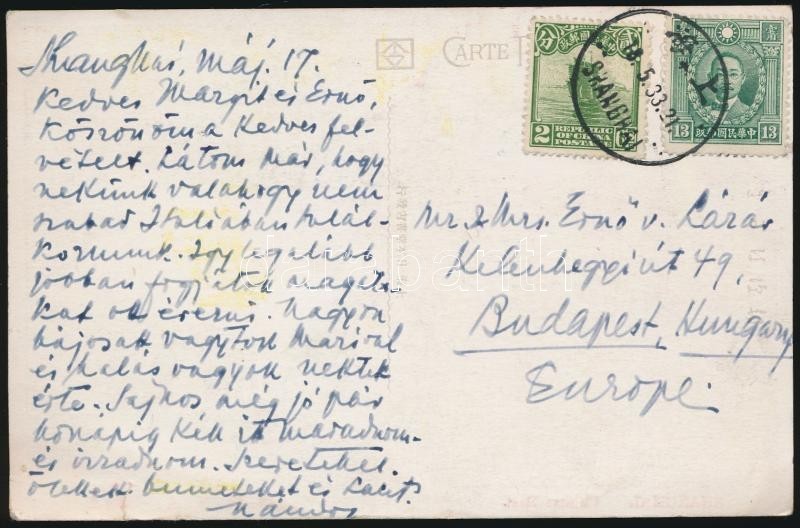 Shanghai, máj. 17.
Kedves Margit és Ernő,
köszönöm a kedves fel-
vételt. Látom már, hogy
nekünk valahogy nem
szabad Italiában talál-
koznunk. Igy legalább
jobban fogjátok magato-
kat ott érezni. Nagyon
bájosak vagytok Marival
és hálás vagyok nektek
érte. Sajnos még jó pár
hónapig kell itt maradnom
és izzadnom. Szeretettel
ölellek benneteket és
Nándor
CARTE
2
REPUBLIC
OF CHINA
POSTAGE
SHANGHAI
18.5.33.21
上
13 中華民國郵政 13
Mr & Mrs. Ernő v. Lázár
Kelenhegyi út 49,
Budapest, Hungary
Europe.
darabanth